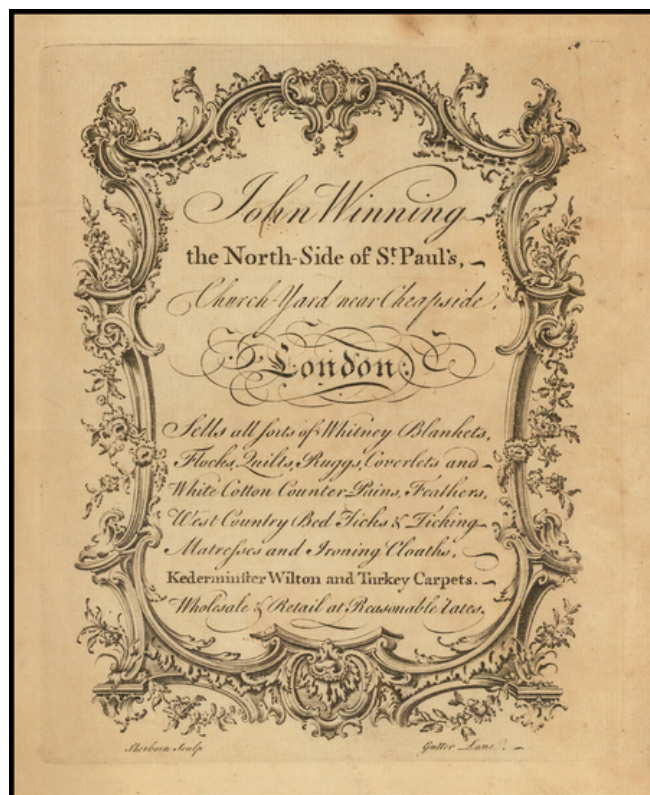 John Winning
the North-Side of St. Paul's,
Church-Yard near Cheapside,
London
Sells all sorts of Whitney Blankets,
Flocks, Quilts, Ruggs, Coverlets and
White Cotton Counter-Pains, Feathers,
West Country Bed Ticks & Ticking
Matresses and Ironing Cloaths,
Kederminster Wilton and Turkey Carpets.
Wholesale & Retail at Reasonable Rates.
Sherborn Sculp
Gutter Lane